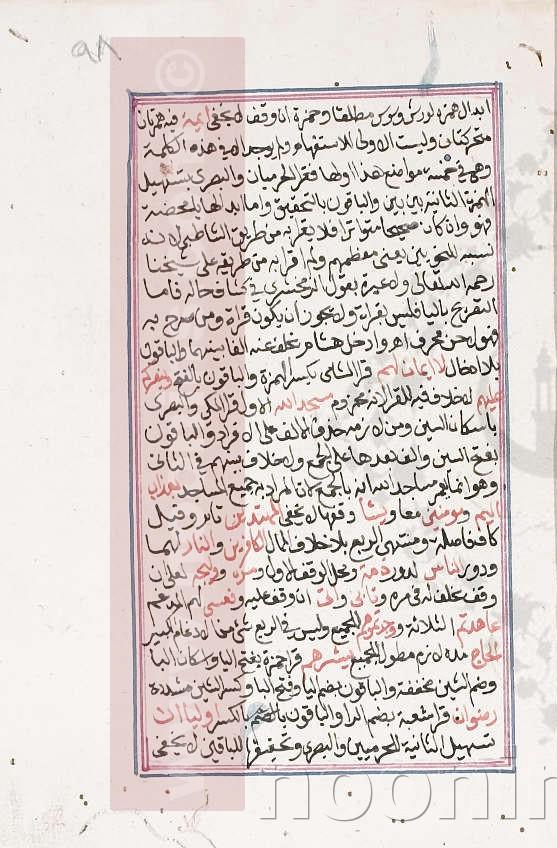 ٩٨
ابدال همزه لورش وسوس مطلقا وحمزة ان وقف لا يخفى ايمة فيه همزتان
متحركتان وليست الاولى للاستفهام ولم يوجد الا في هذه الكلمة
وهي في خمسة مواضع هذا اولها فقرا الحرميان والبصري بتسهيل
الهمزة الثانية بين بين والباقون بالتحقيق واما ابدالها ياء محضة
فهو وان كان صحيحا متواترا فلا يقرا به من طريق الشاطبي لانه
نسبه للنحويين يعني معظمهم ولم اقرا به من طريقه على شيخنا
رحمه الله تعالى ولا عبرة بقول الزمخشري في كشافه حاله فاما
التصريح بالياء فليس بقراءة ولا يجوز ان يكون قراة ومن صرح به
فهو لاحن محرف اهـ وادخل هشام بخلف عنه الفا بينهما والباقون
بلا ادخال لا ايمان لهم قرا الشامي بكسر الهمزة والباقون بالفتح ويتوب
عليهم لا خلاف فيه للقراء انه مجزوم مسجد الله الاول قرا المكي والبصري
باسكان السين ومن لازمه حذف الالف على الافراد والباقون
بفتح السين والف بعدها على الجمع ولا خلاف بينهم في الثاني
وهو انما يعمر مساجد الله انه بالجمع لان المراد به جميع المساجد بعذاب
اليم ومومنين معا ويشا وقفها لا يخفى المهتدين تام وقيل
كاف فاصلة ومنتهى الربع بلا خلاف الممال الكافرين والنار لهما
ودور الناس لدور ذمة ومحل الوقف الاول ومرة وليجة لعلي ان
وقف بخلف له في مرة وتابى واتى ان وقف عليه وعسى لهم المدغم
عاهدتم الثلاثة ووجدتموهم للجميع وليس في الربع شي من الادغام الكبير
الحاج مده لازم مطول للجميع يبشرهم قرا حمزة بفتح الياء واسكان الباء
وضم الشين مخففة والباقون بضم الياء وفتح الباء وكسر الشين مشددة
رضوان قرا شعبة بضم الراء والباقون بالكسر اولياء ان
تسهيل الثانية للحرميين والبصري وتحقيقها للباقين لا يخفى
noonir